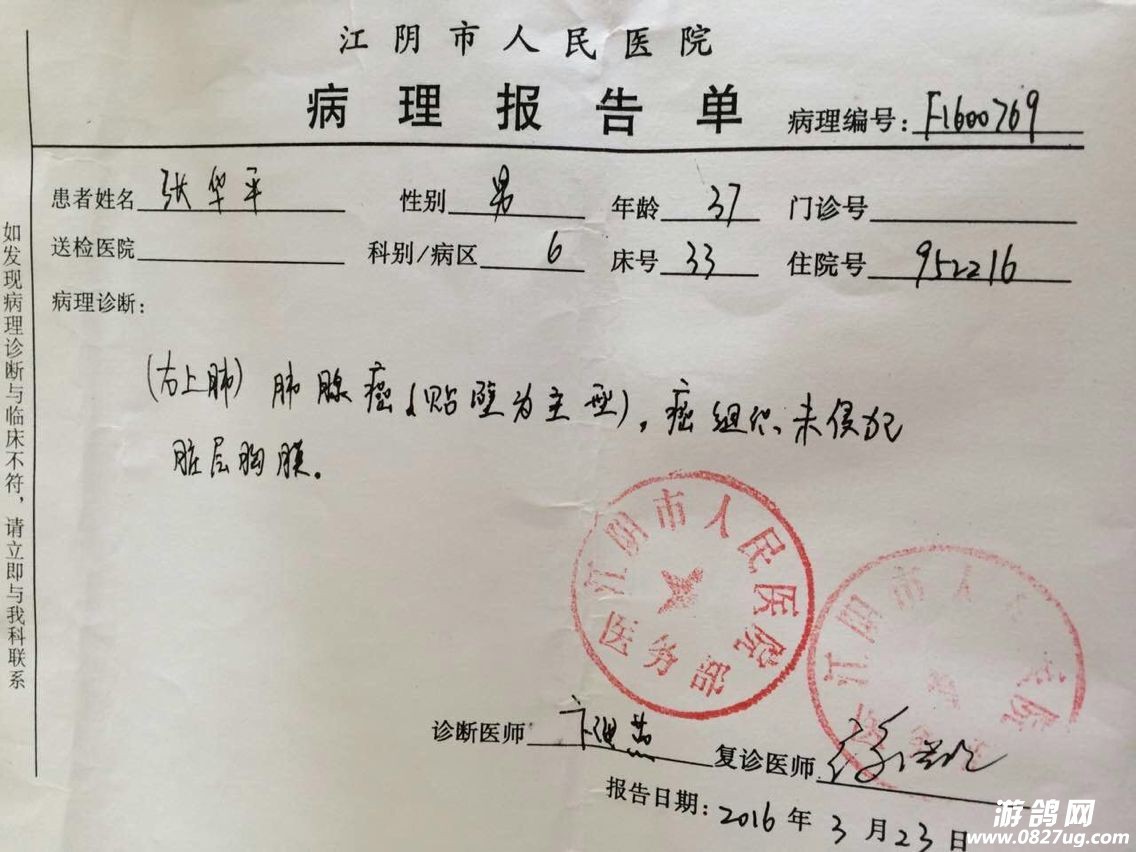 江阴市人民医院
病理报告单
病理编号: F1600769
患者姓名 张华平 性别 男 年龄 37 门诊号
送检医院 科别/病区 6 床号 33 住院号 952216
病理诊断:
(右上肺) 肺腺癌(贴壁为主型), 癌组织未侵犯
脏层胸膜.
江阴市人民医院
医务部
江阴市人民医院
诊断医师 复诊医师
报告日期: 2016 年 3 月 23 日
如发现病理诊断与临床不符,请立即与我科联系
游鸽网
www.0827ug.com